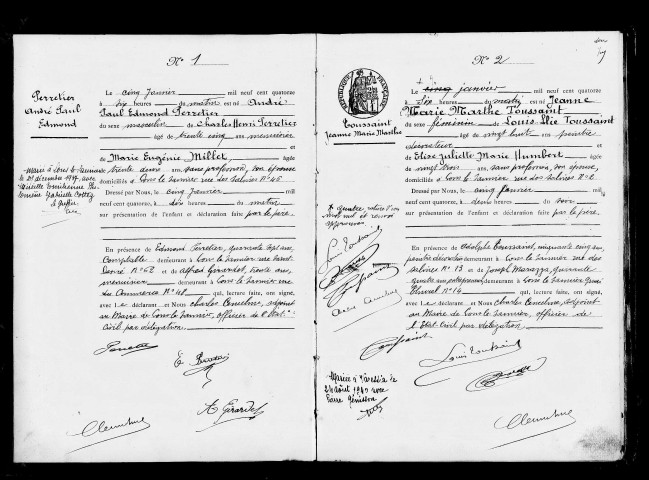 N° 1
Perretier
André Paul
Edmond
Le cinq janvier mil neuf cent quatorze
à six heures du matin est né André
Paul Edmond Perretier
du sexe masculin de Charles Henri Perretier
âgé de trente cinq ans, menuisier
et
de Marie Eugénie Millet, âgée
de trente deux ans, sans profession, son épouse
domiciliés à Lons le Saunier rue des Salines N° 45
Dressé par Nous, le cinq janvier mil
neuf cent quatorze, à dix heures du matin
sur présentation de l'enfant et déclaration faite par le père.
Marié à Lons le Saunier
le 21 décembre 1937 avec
En présence de Edmond Perretier, quarante sept ans,
comptable demeurant à Lons le Saunier rue Saint
Désiré N° 62 et Alfred Girardet, trente ans,
menuisier demeurant à Lons le Saunier rue
du Commerce N° 48 qui, lecture faite, ont signé,
avec le déclarant et Nous Charles Cencelme, adjoint
au Maire de Lons le Saunier, officier de l'Etat
Civil par délégation.
A Girardet
N° 2
RÉPUBLIQUE FRANÇAISE
Toussaint
Jeanne Marie Marthe
Le cinq janvier mil neuf cent quatorze
à six heures du matin est né Jeanne
Marie Marthe Toussaint
du sexe féminin de Louis Elie Toussaint
âgé de vingt huit ans, peintre
décorateur
et
de Elise Juliette Marie Humbert, âgée
de vingt trois ans, sans profession, son épouse,
domiciliés à Lons le Saunier rue des Salines N° 2
Dressé par Nous, le cinq janvier mil
neuf cent quatorze, à deux heures du soir
sur présentation de l'enfant et déclaration faite par le père.
En présence de Adolphe Toussaint, cinquante cinq ans,
peintre décorateur demeurant à Lons le Saunier rue des
Salines N° 13 et Joseph Marazzi, quarante
quatre ans, entrepreneur demeurant à Lons le Saunier
N° 14 qui, lecture faite, ont signé,
avec le déclarant et Nous Charles Cencelme, adjoint
au Maire de Lons le Saunier, officier de
l'Etat-Civil par délégation.
Louis Toussaint
Mariée à
24 août 1940 avec
Pierre Génisson